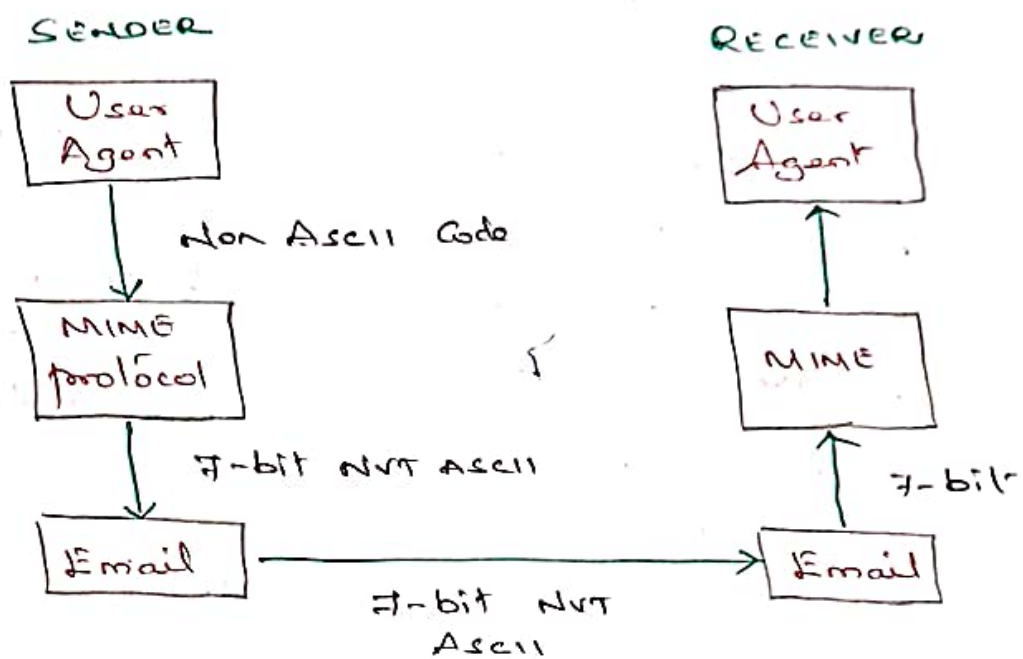 SENDER
User
Agent
Non Ascii Code
MIME
protocol
7-bit NVT ASCII
Email
7-bit NVT
ASCII
RECEIVER
User
Agent
MIME
7-bit
Email